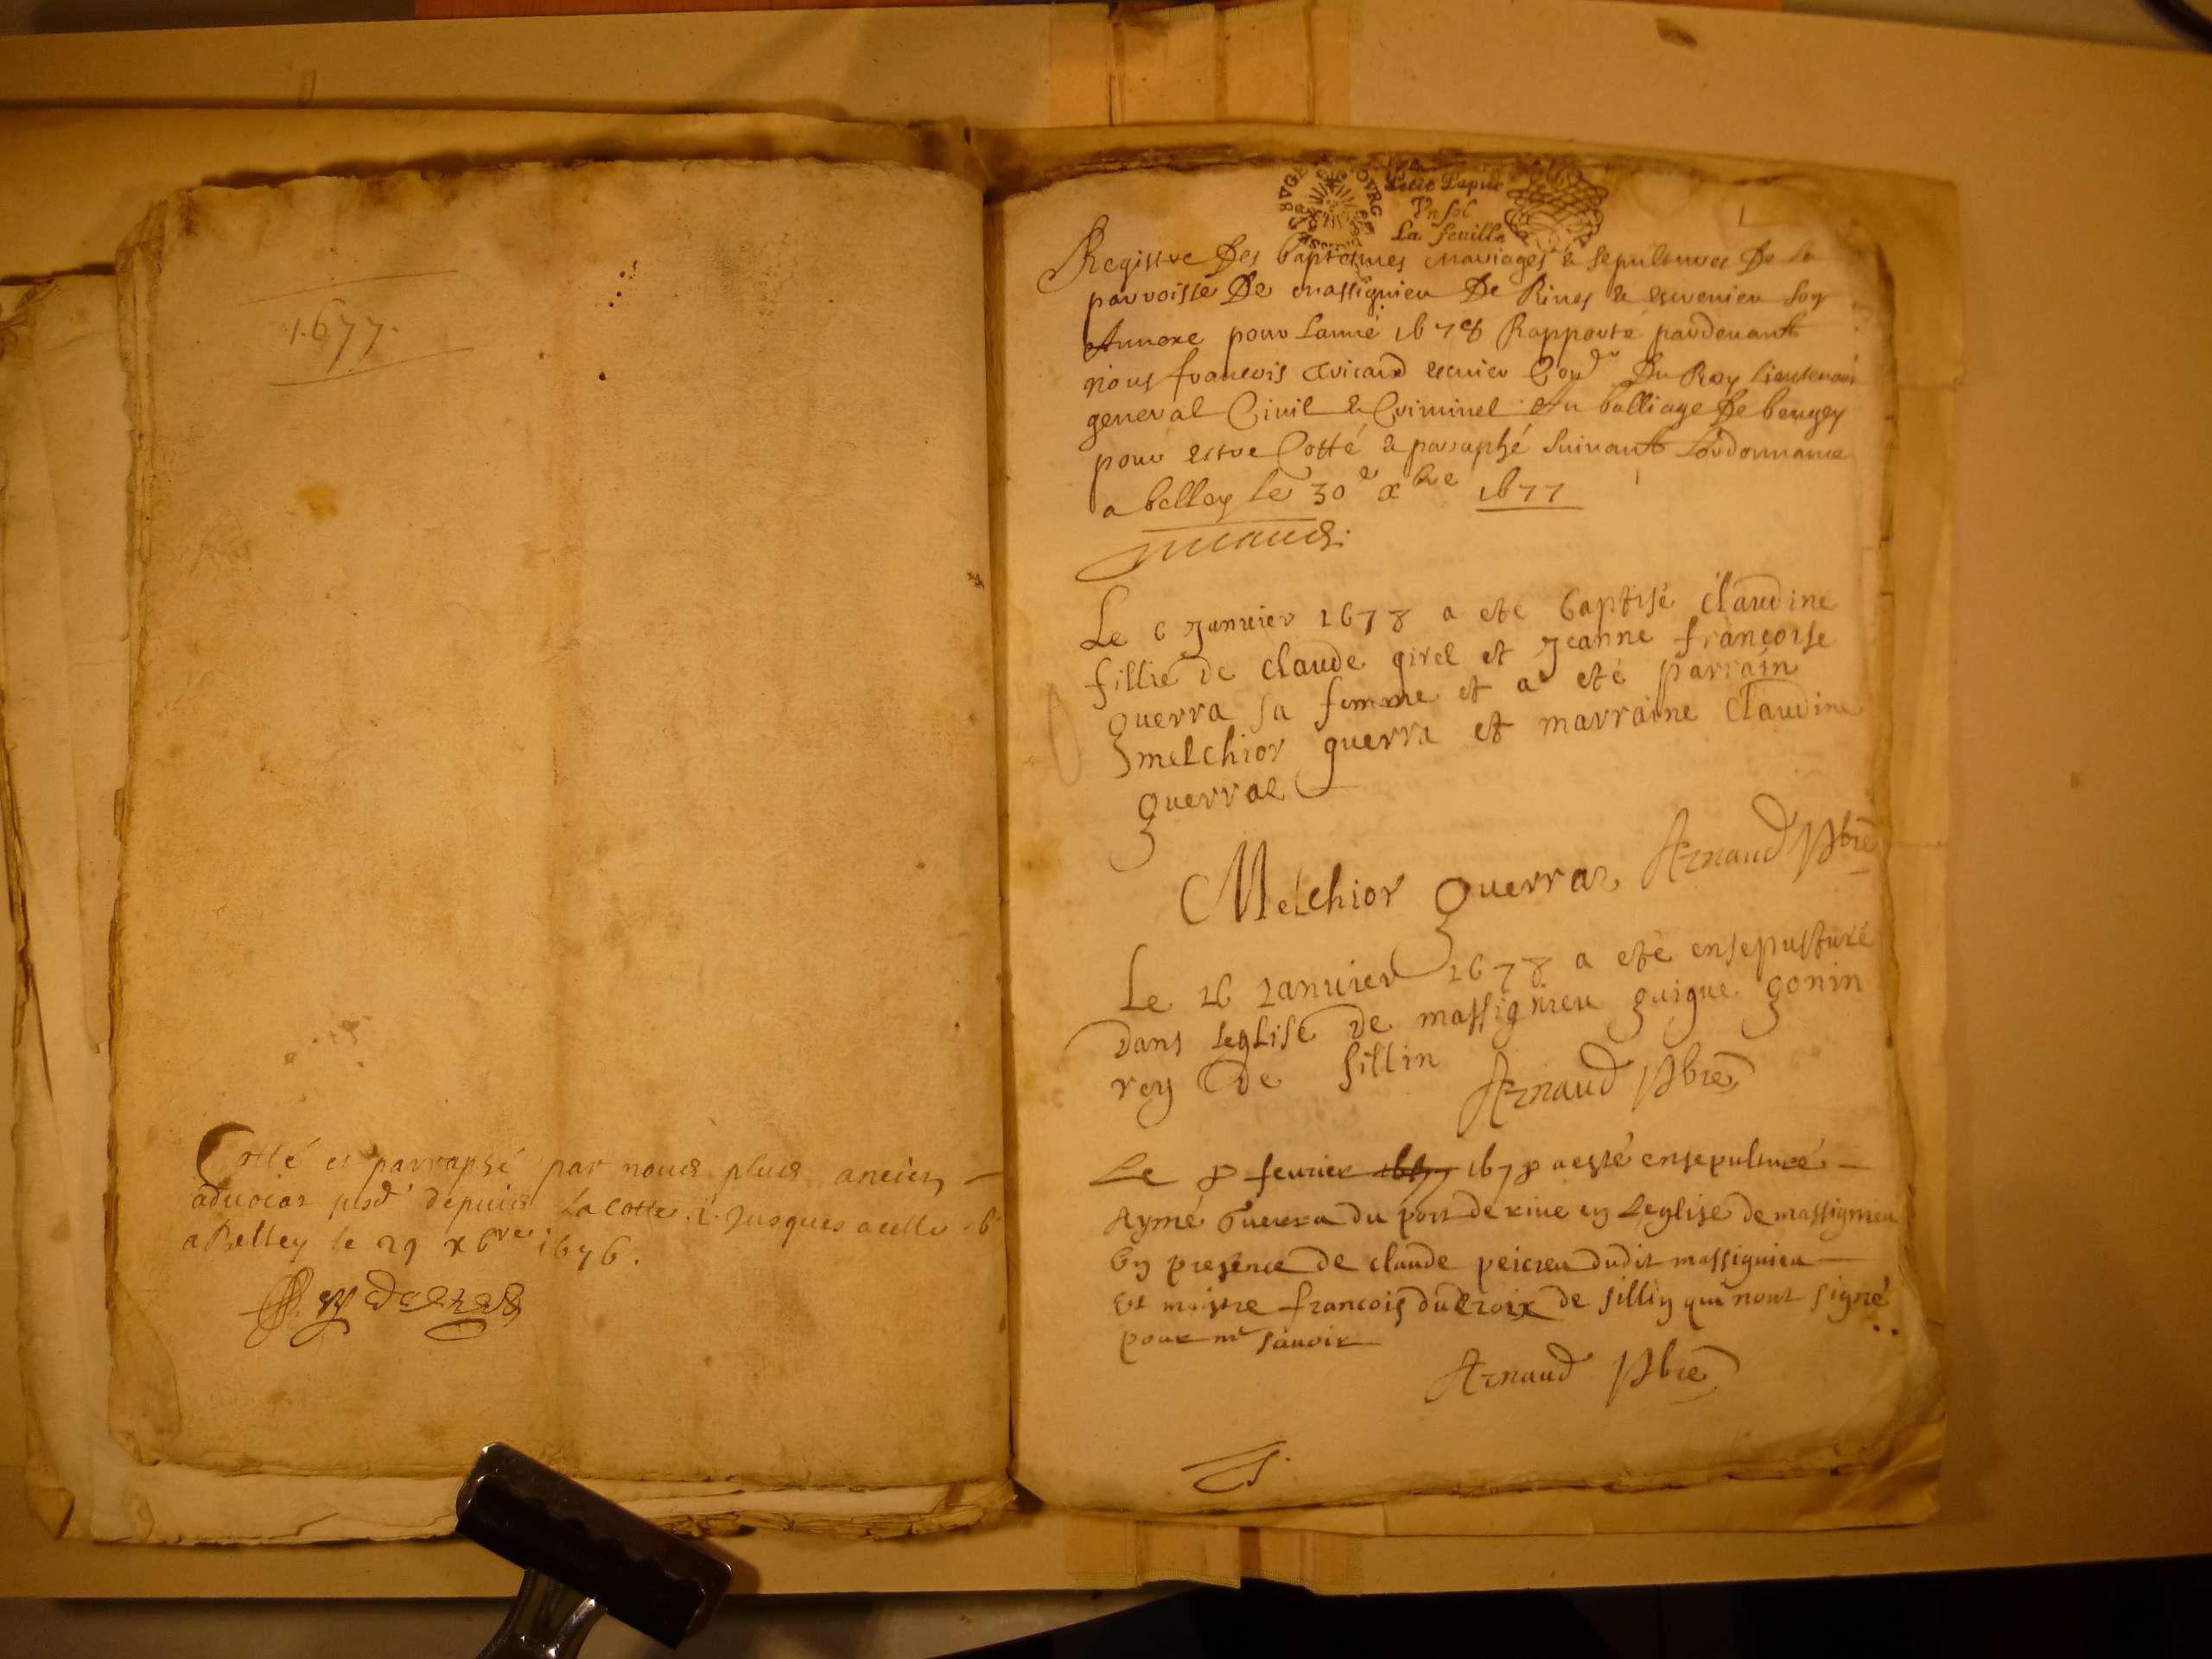 1.677.
Cotté et parraphé par nous plus ancien
advocat depuis La cotte .1. Jusques a celle 6
a Belley le 29 xbre 1676.
BUGEY BOVRG
Petit Papier
Un sol
La feuille
1
Registre Des baptesmes mariages & sepultures De la
parroisse De massignieu De Rives & escrenieu son
Annexe pour Lanné 1678 Rapporté pardevant
nous francois escuier Du Roy Lieutenant
general Civil & Criminel Au balliage De beugey
pour estre Cotté & paraphé suivant Lordonnance
a belley Le 30e xbre 1677
Le 6 Janvier 1678 a eté baptisé claudine
fillie de claude girel et Jeanne francoise
guerra sa femme et a eté parrain
melchior guerra et marraine claudine
guerraz
Melchior guerraz Arnaud pbre
Le 16 Janvier 1678 a eté ensepulturé
dans leglise de massignieu guigue gonin
rey de sillin
Arnaud pbre
Le 8 fevrier 1677 1678 a esté ensepulturé
Aymé Guerra du port de rive en Leglise de massignieu
En presence de claude dudit massignieu
Et maistre francois ducroix de sillin qui nont signé
pour ne savoir
Arnaud pbre